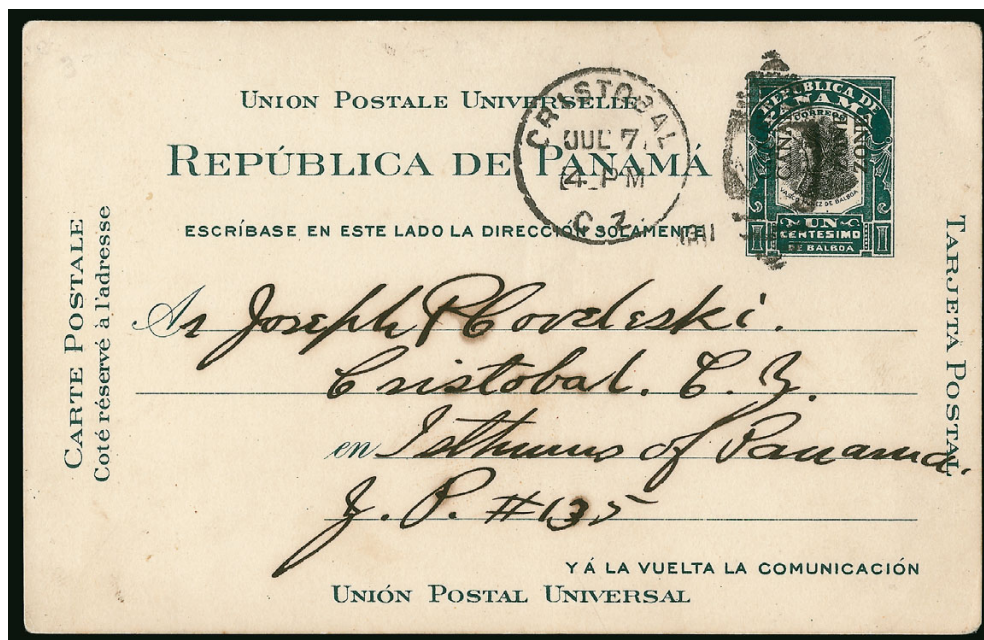 UNION POSTALE UNIVERSELLE
REPÚBLICA DE PANAMÁ
ESCRÍBASE EN ESTE LADO LA DIRECCIÓN SOLAMENTE
CRISTOBAL
JUL 7
4 PM
C. Z.
REPUBLICA DE
PANAMA
CORREOS
CANAL
ZONE
VASCO NUÑEZ DE BALBOA
1 UN 1
CENTESIMO
DE BALBOA
CARTE POSTALE
Coté réservé à l'adresse
TARJETA POSTAL
A Joseph P Coveleski.
Cristobal. C. Z.
en Isthmus of Panama.
#135
Y Á LA VUELTA LA COMUNICACIÓN
UNIÓN POSTAL UNIVERSAL